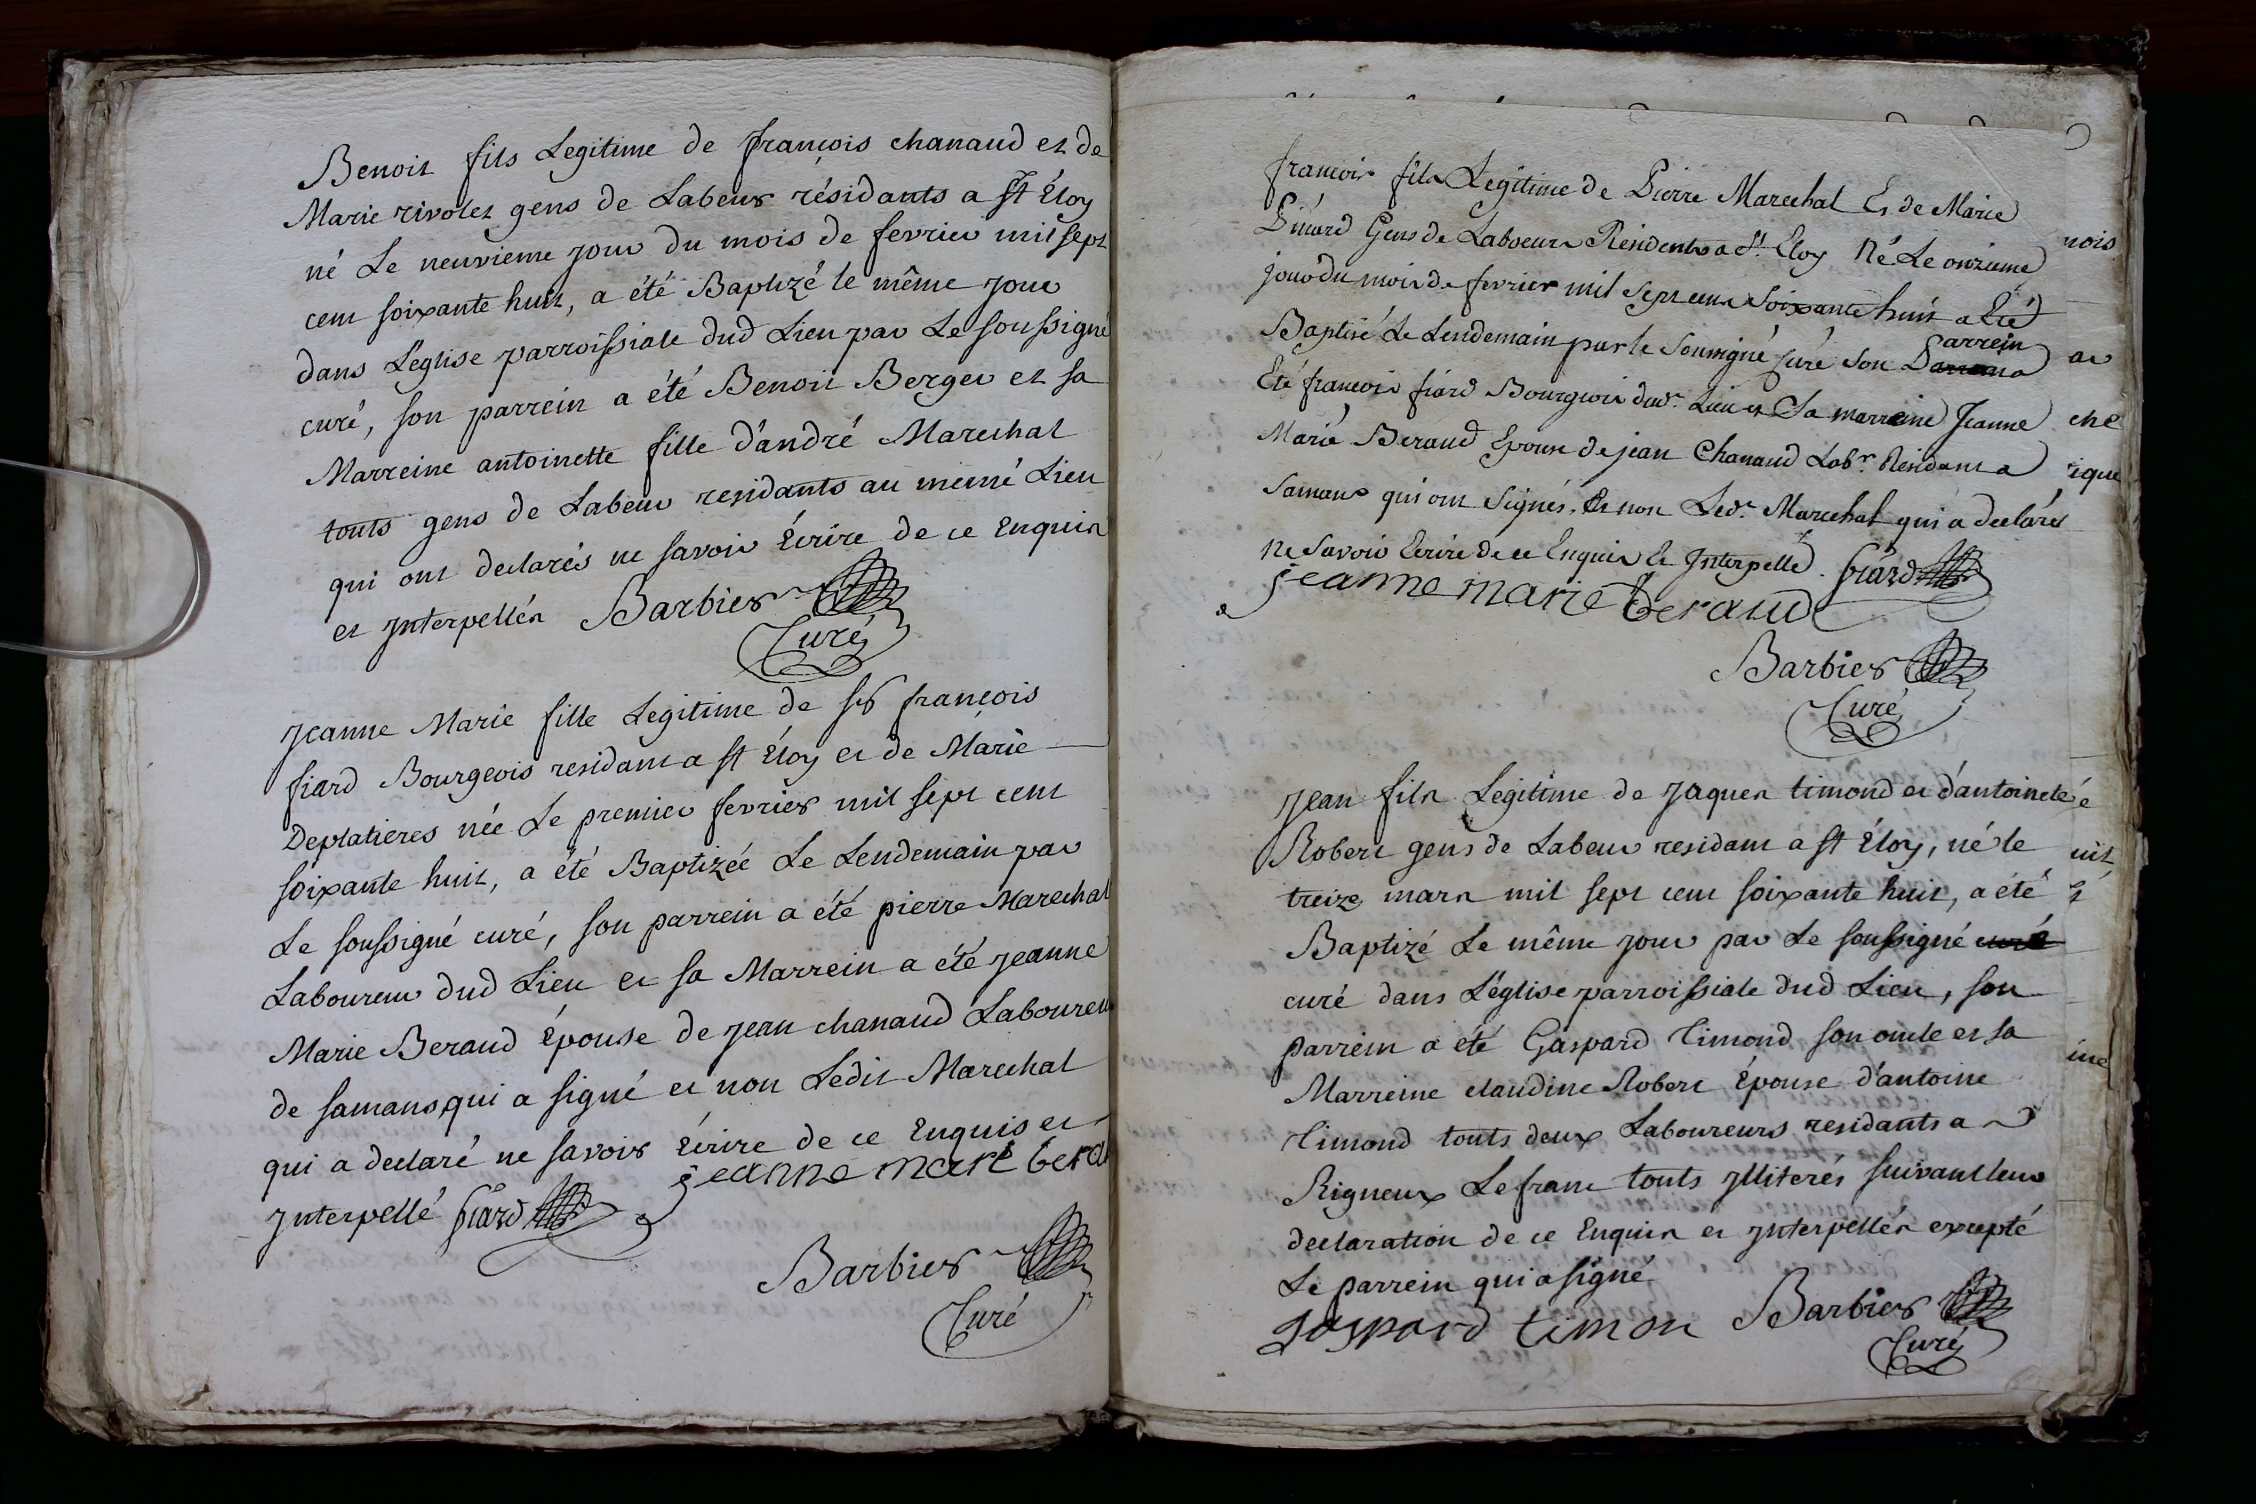 Benoit fils Legitime de françois chanaud et de
Marie rivolet gens de Labeur résidants a st Éloy
né Le neuvieme jour du mois de fevrier mil sept
cent soixante huit, a été Baptizé le même jour
dans L'eglise parroissiale dud Lieu par Le soussigné
curé, son parrein a été Benoit Berger et sa
Marreine antoinette fille d'andré Marechal
touts gens de Labeur residants au meme Lieu
qui ont declarés ne savoir Écrire de ce Enquis
et Interpellés Barbier
Curé
Jeanne Marie fille Legitime de sr françois
fiard Bourgeois residant a st Éloy et de Marie
Deplatieres née Le premier fevrier mil sept cent
soixante huit, a été Baptizée Le Lendemain par
Le soussigné curé, son parrein a été pierre Marechal
Laboureur dud Lieu et sa Marrein a été Jeanne
Marie Beraud Épouse de Jean chanaud Laboureur
de samans qui a signé et non Ledit Marechal
qui a declaré ne savoir Écrire de ce Enquis et
Interpellé fiard jeanne marie bera
Barbier
Curé
francois fils Legitime de Pierre Marechal Et de Marie
Gens de Laboeur Residents a St. Eloy Né Le onzieme
jour du mois de fevrier mil sept cent soixante huit a Eté
Baptisé Le Lendemain par le soussigné curé son Parrein
Eté francois fiard Bourgeois dud. Lieu et Sa marreine Jeanne
Marie Beraud Epouse de jean Chanaud Labr. Résidant a
Samans qui ont signés, Et non Led. Marechal qui a declarés
Ne Savoir Ecrire de ce Enquis Et Interpellé. fiard
jeanne marie beraud
Barbier
Curé
Jean fils Legitime de Jaques timond et d'antoinete
Robert gens de Labeur residant a st Éloy, né le
treize mars mil sept cent soixante huit, a été
Baptizé Le même jour par Le soussigné curé
curé dans L'église parroissiale dud Lieu, son
parrein a été Gaspard Timond son oncle et sa
Marreine claudine Robert Épouse d'antoine
Timond touts deux Laboureurs residants a
Rigneux Lefranc touts Illiterés suivant leur
declaration de ce Enquis et Interpellés excepté
Le parrein qui a signé
gaspard timon Barbier
Curé
nois
ar
che
ique
é
uit
ine